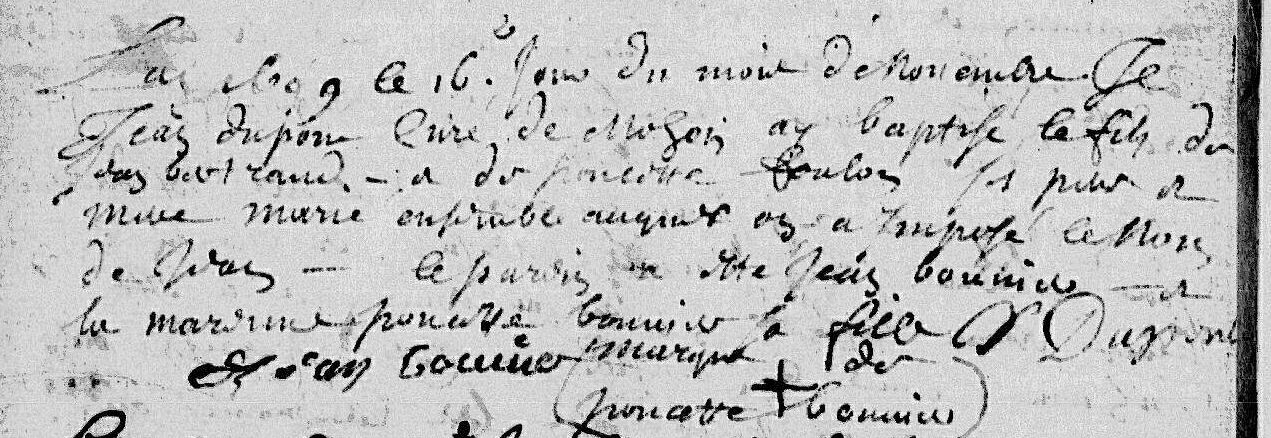 Lan le 16e Jour du mois de Novembre Je
Jean dupont Curé de ay baptisé le fils de
Jean bertrand – et de poncette ses pere et
mere marié ensemble auquel on a Imposé le Nom
de Jean – le parrin a este Jean bonnier – et
la marenne poncette bonnier sa fille J Dupont
Jean bonnier marque de
poncette + bonnier